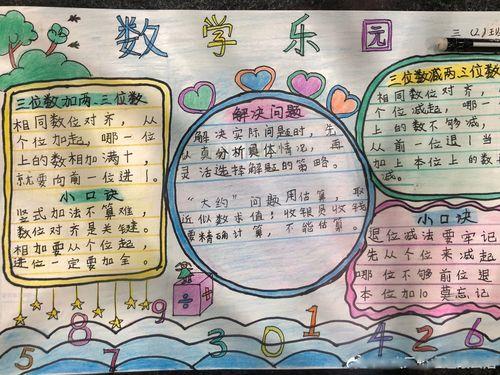 数学乐园
三(2)班
三位数加两、三位数
相同数位对齐，从
个位加起，哪一位
上的数相加满十，
就要向前一位进1。
小口诀
竖式加法不算难，
数位对齐是关键。
相加要从个位起，
进位一定要加全。
解决问题
解决实际问题时，先
认真分析具体情况，再
灵活选择解题的策略。
“大约”问题用估算，取
近似数求值；收银员收钱
要精确计算，不能估算。
三位数减两、三位数
相同数位对齐，从
个位减起，哪一位
上的数不够减，
从前一位退1当
加上本位上的数
减。
小口诀
退位减法要牢记
先从个位来减起
哪位不够前位退
本位加10莫忘记
÷
5 8 7 9 3 0 1 4 2 6